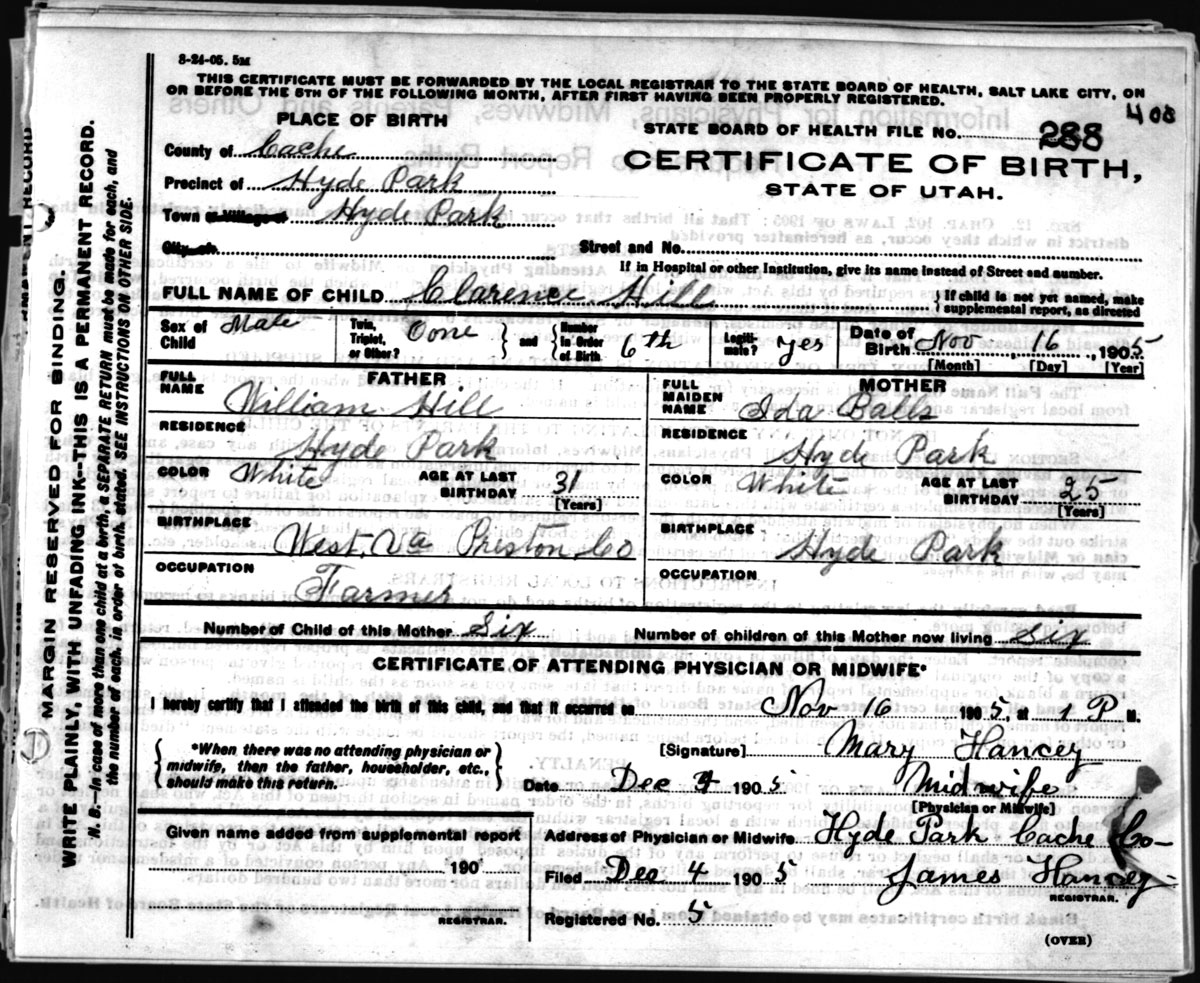 8-24-05. 5M
THIS CERTIFICATE MUST BE FORWARDED BY THE LOCAL REGISTRAR TO THE STATE BOARD OF HEALTH, SALT LAKE CITY, ON
OR BEFORE THE 5TH OF THE FOLLOWING MONTH, AFTER FIRST HAVING BEEN PROPERLY REGISTERED.
408
PLACE OF BIRTH
STATE BOARD OF HEALTH FILE No. 288
County of Cache
CERTIFICATE OF BIRTH,
Precinct of Hyde Park
STATE OF UTAH.
Town or Village of Hyde Park
City of
Street and No.
If in Hospital or other Institution, give its name instead of Street and number.
FULL NAME OF CHILD Clarence Hill
If child is not yet named, make
supplemental report, as directed
Sex of Child Male
Twin, Triplet, or Other? One
and
Number in Order of Birth 6th
Legiti-mate? Yes
Date of Birth Nov 16, 1905
[Month] [Day] [Year]
FATHER
FULL NAME William Hill
RESIDENCE Hyde Park
COLOR White
AGE AT LAST BIRTHDAY 31
[Years]
BIRTHPLACE West. Va Preston Co
OCCUPATION Farmer
MOTHER
FULL MAIDEN NAME Ida Balls
RESIDENCE Hyde Park
COLOR White
AGE AT LAST BIRTHDAY 25
[Years]
BIRTHPLACE Hyde Park
OCCUPATION
Number of Child of this Mother Six
Number of children of this Mother now living Six
CERTIFICATE OF ATTENDING PHYSICIAN OR MIDWIFE*
I hereby certify that I attended the birth of this child, and that it occurred on Nov 16 1905, at 1 P M.
*When there was no attending physician or
midwife, then the father, householder, etc.,
should make this return.
[Signature] Mary Hancey
Date Dec 4 1905
Midwife
[Physician or Midwife]
Given name added from supplemental report
190
REGISTRAR.
Address of Physician or Midwife Hyde Park Cache Co
Filed Dec 4 1905
James Hancey
REGISTRAR.
Registered No. 5
(OVER)
MARGIN RESERVED FOR BINDING.
WRITE PLAINLY, WITH UNFADING INK—THIS IS A PERMANENT RECORD.
N. B.—In case of more than one child at a birth, a SEPARATE RETURN must be made for each, and
the number of each, in order of birth, stated. SEE INSTRUCTIONS ON OTHER SIDE.